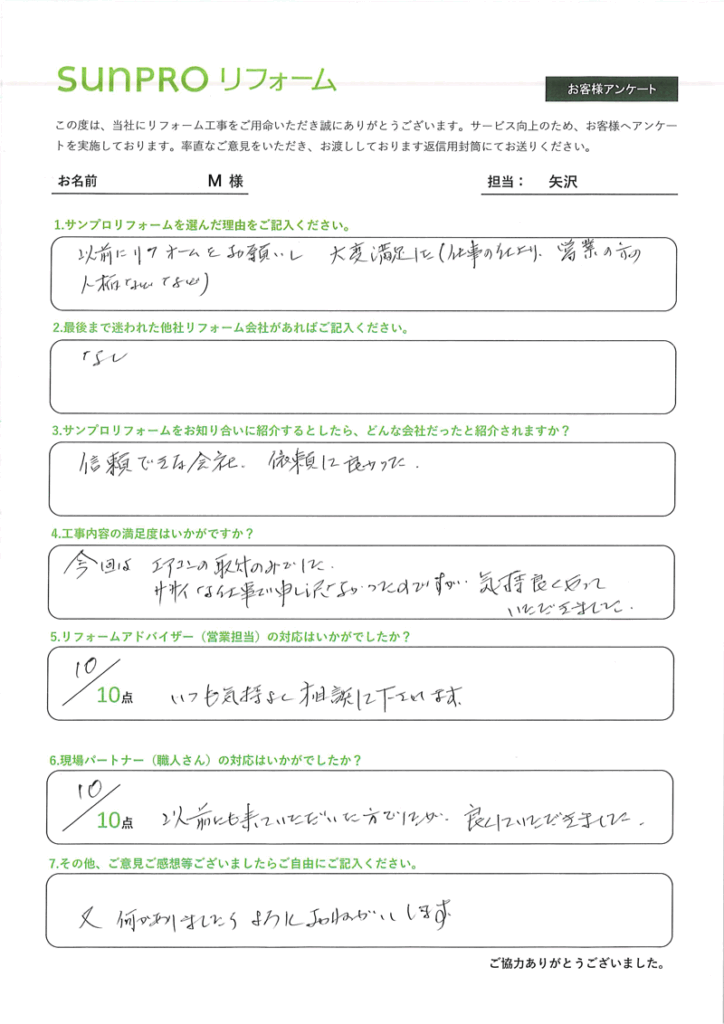 sunPRO リフォーム
お客様アンケート
この度は、当社にリフォーム工事をご用命いただき誠にありがとうございます。サービス向上のため、お客様へアンケー
トを実施しております。率直なご意見をいただき、お渡ししております返信用封筒にてお送りください。
お名前 M 様 担当： 矢沢
1.サンプロリフォームを選んだ理由をご記入ください。
以前にリフォームをお願いし 大変満足した(仕事の仕上り、営業の方の
人柄などなど)
2.最後まで迷われた他社リフォーム会社があればご記入ください。
なし
3.サンプロリフォームをお知り合いに紹介するとしたら、どんな会社だったと紹介されますか？
信頼できる会社、依頼して良かった.
4.工事内容の満足度はいかがですか？
今回は エアコンの取付のみでした.
ササイな仕事で申し訳なかったのですが、気持良くやって
いただきました.
5.リフォームアドバイザー（営業担当）の対応はいかがでしたか？
10/10点 いつも気持よく相談に下さいます.
6.現場パートナー（職人さん）の対応はいかがでしたか？
10/10点 以前にも来ていただいた方でしたが、良くしていただきました.
7.その他、ご意見ご感想等ございましたらご自由にご記入ください。
又 何かありましたら よろしくおねがいします
ご協力ありがとうございました。